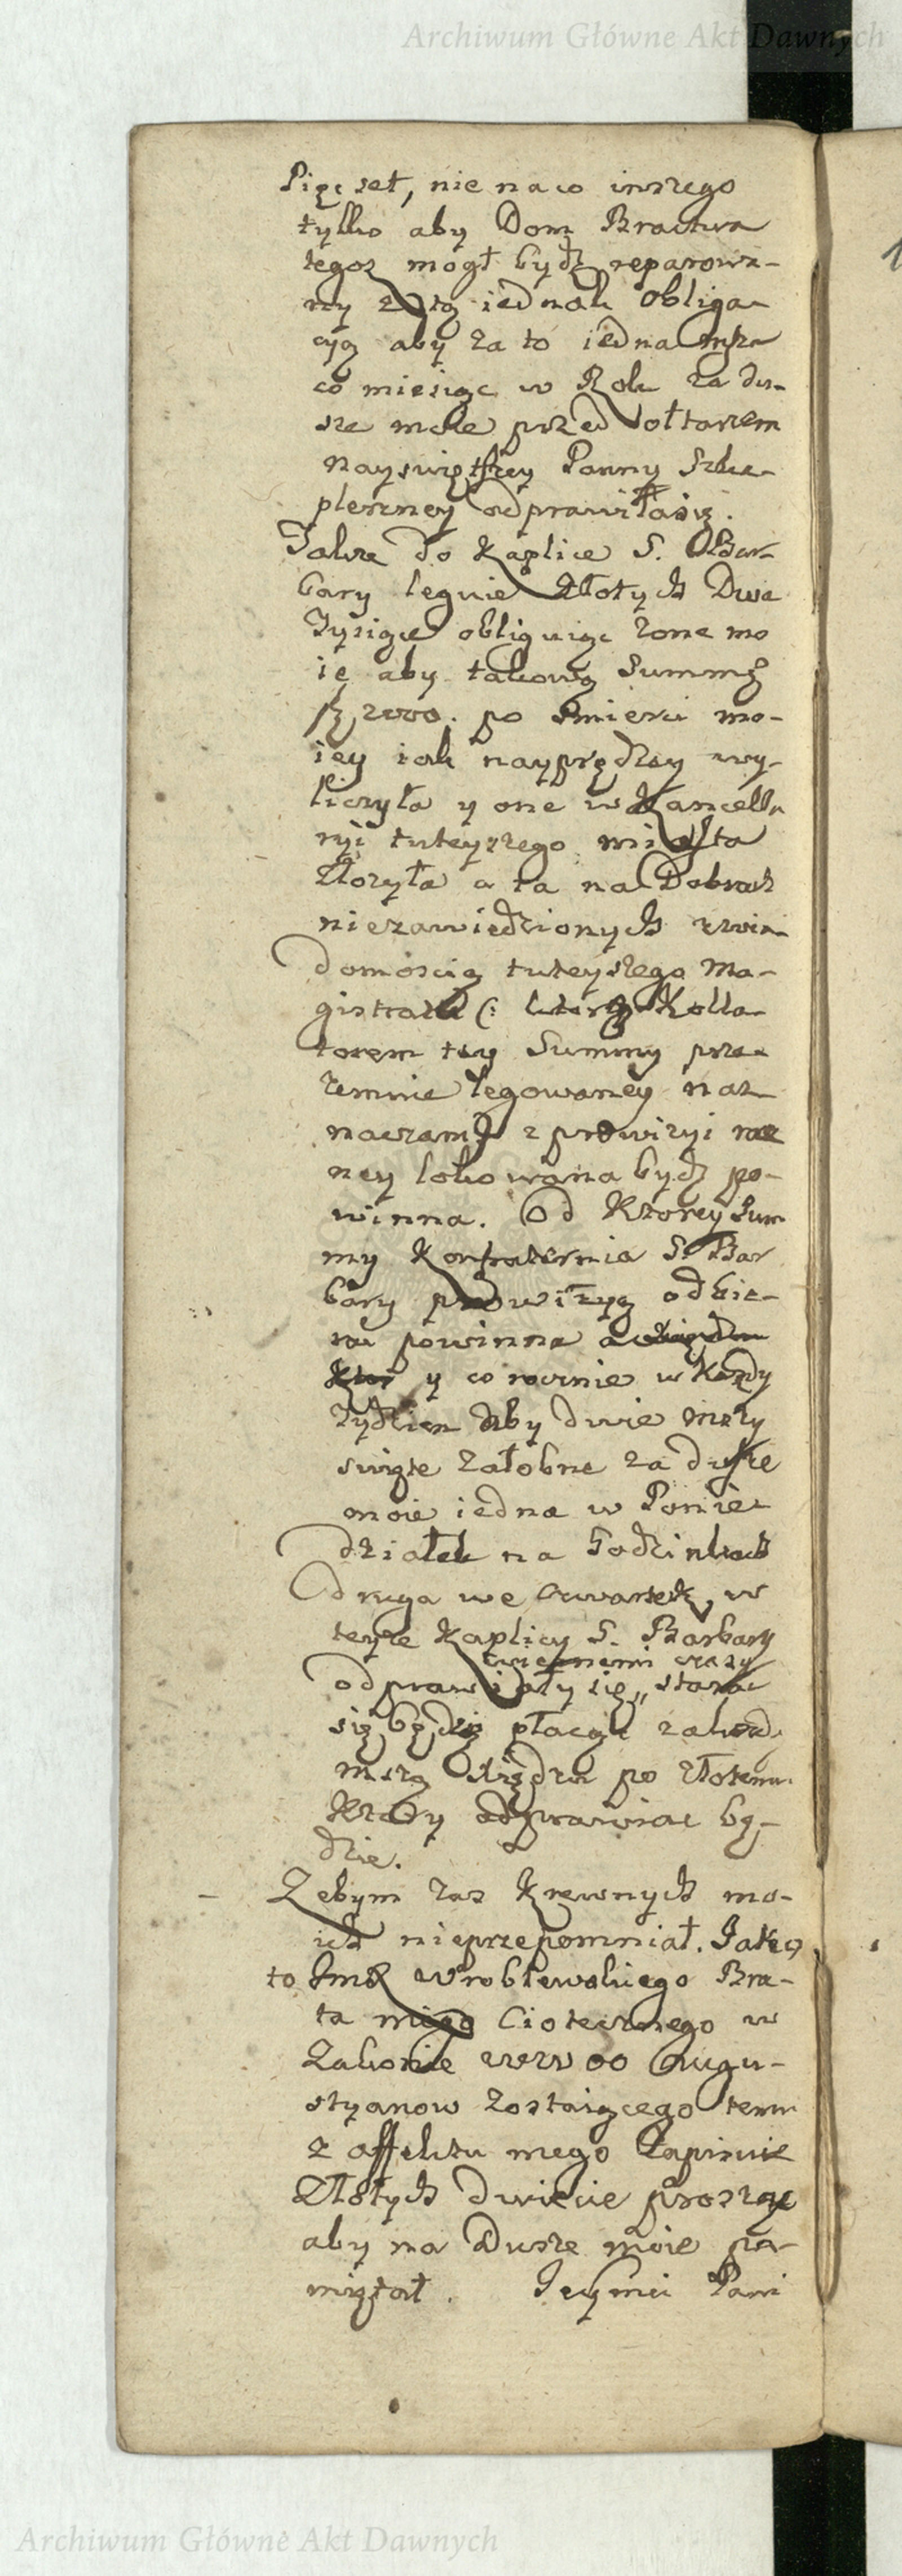 Archiwum Główne Akt Dawnych
Pięc set, nie na co inszego
tylko aby Dom Bractwa
tegosz mogł bydz reparowa-
ny z tą iednak obliga-
cyą aby za to iedna msza
co miesiąc w Roku za du-
sze moie przed ołtarzem
nayswiętszey Panny Szka-
plerzney odprawiłasię.
Takze do Kaplice S. Bar-
bary leguie Złotych Dwa
Tysiące obliguiąc zone mo
ię aby takową Summę
fl 2000. po smierci mo-
iey iak nayprędzey wy-
liczyła y one w Kancella
ryi tuteyszego miasta
Złozyła a ta na Dobrach
niezawiedzionych zwia-
domoscią tuteyszego Ma-
gistratu (: Kolla-
torem tey Summy prze-
zemnie legowaney naz-
naczam) z prowizyi
ney lokowana bydz po-
winna. Od Ktorey Sum
my Konfraternia S. Bar
bary prowizyą odbie-
rac powinna a
y co rocznie w Kazdy
Tydzien aby dwie mszy
swięte załobne za dusze
moie iedna w Ponie-
działek na Godzinkach
druga we czwartek w
teyze Kaplicy S. Barbary
wiecznemi czasy
odprawiały się,, starac
się będzie płacąc zakazd.
mszą Xiędzu po złotemu
Ktory odprawiac bę-
dzie.
Zebym zas Krewnych mo-
ich nieprzepomniał. Jako
to Jmę Wroblewskiego Bra-
ta mego Ciotecznego w
Zakonie WW OO Augu-
styanow zostaiącego temu
z affektu mego Zapisuie
Złotych dwiescie prosząc
aby na Dusze moie pa-
miętał. Jeymci Pani
Archiwum Główne Akt Dawnych